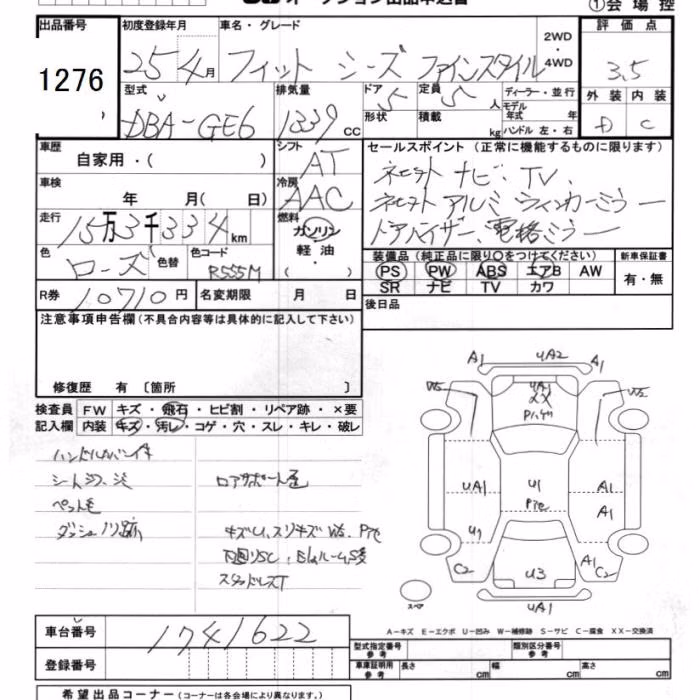 オークション出品申込書
①会場控
出品番号
1276
初度登録年月
25 4月
車名・グレード
フィット シーズ ファインスタイル
2WD・4WD
評価点
3.5
型式
DBA-GE6
排気量
1339cc
ドア
5
定員
5人
形状
積載
kg
ディーラー・並行
モデル年式 年
ハンドル 左・右
外装
D
内装
C
車歴
自家用・( )
シフト
AT
セールスポイント (正常に機能するものに限ります)
ナビ、TV
アルミ ウィンカーミラー
ドアバイザー、電格ミラー
車検
年 月( 日)
冷房
AAC
走行
15万3千334km
燃料
ガソリン
軽油
・( )
色
ローズ
色替
色コード
R555M
装備品 (純正品に限り○をつけてください)
PS PW ABS エアB AW
SR ナビ TV カワ
新車保証書
有・無
R券
10710円
名変期限 月 日
後日品
注意事項申告欄 (不具合内容等は具体的に記入して下さい)
修復歴 有 〔箇所 〕
検査員記入欄
FW キズ・飛石・ヒビ割・リペア跡・×要
内装 キズ・汚レ・コゲ・穴・スレ・キレ・破レ
ペット毛
ダッシュノリ跡
ロアサポート歪
スタッドレスT
A1 UA2 A1
UA1
XX
U1
UA1 A1
A1
A1
C2 U3 C2
UA1
スペア
A-キズ E-エクボ U-凹み W-補修跡 S-サビ C-腐食 XX-交換済
車台番号
1741622
登録番号
型式指定番号 参考
類別区分番号 参考
車庫証明用 参考
長さ cm
幅 cm
高さ cm
希望出品コーナー (コーナーは各会場により異なります。)